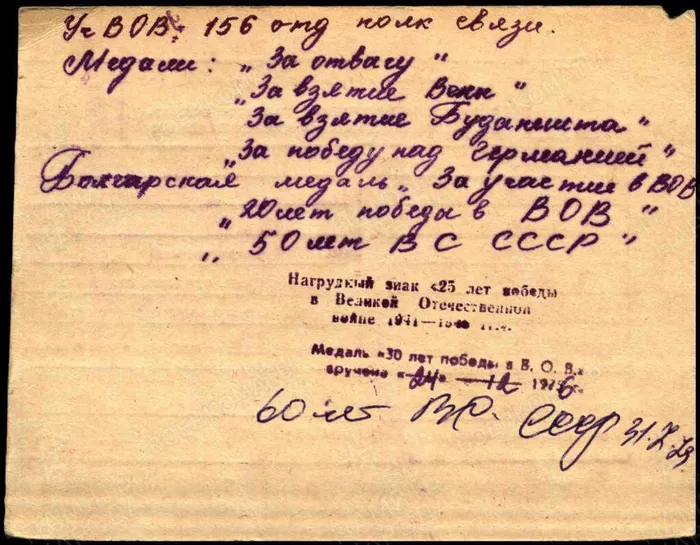 Уч ВОВ: 156 отд полк связи.
Медали: „За отвагу“
„За взятие Вены“
„За взятие Будапешта“
„За победу над Германией“
Болгарская медаль „За участие в ВОВ
„20 лет победа в ВОВ“
„50 лет ВС СССР“
Нагрудный знак «25 лет победы
в Великой Отечественной
войне 1941—
Медаль «30 лет победы в В. О. В.»
вручена «24» —12 1976г.
60 лет ВС. СССР 31.